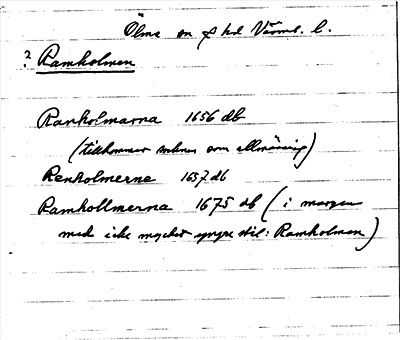 Ölme sn o hd Värml. l.
? Ramholmen
Ranholmarna 1656 db
(tillkommer som allmänning)
Renholmerne 1657 db
Ramhollmerna 1675 db (i margen
med icke mycket yngre stil: Ramholmen)